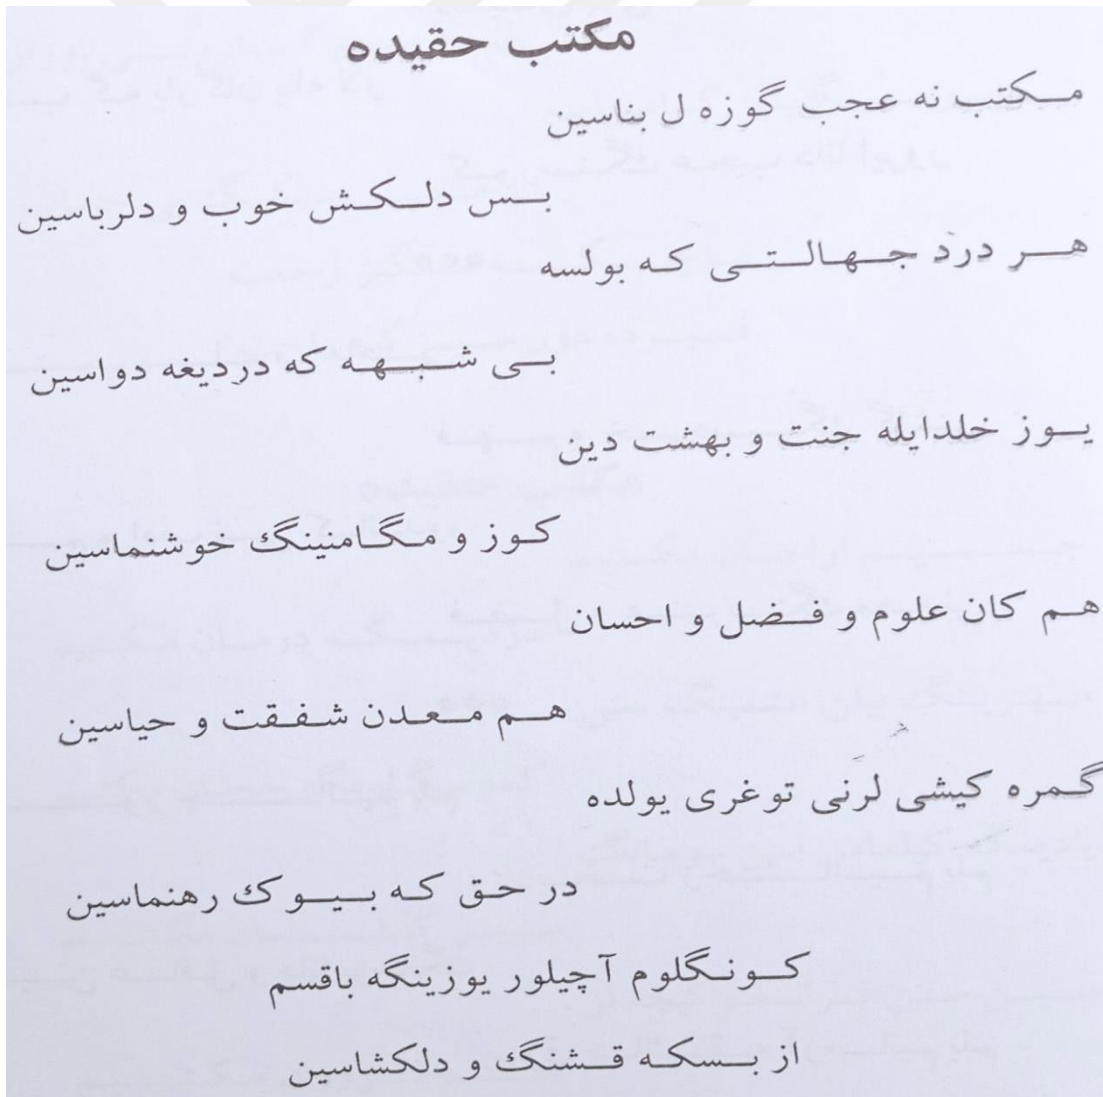 مکتب حقیده
مـکتب نه عجب گوزه ل بناسین
بـس دلـکـش خوب و دلرباسین
هـر درد جـهـالـتـی کـه بولسه
بـی شـبـهـه که دردیغه دواسین
یـوز خلدایله جنت و بهشت دین
کـوز و مـگـامنینگ خوشنماسین
هـم کان علوم و فـضل و احسان
هـم مـعـدن شـفـقت و حیاسین
گـمره کیشی لرنی توغری یولده
در حق کـه بـیـو ك رهنماسین
کـونـگلوم آچیلور یوزینگه باقسم
از بـسکـه قـشنگ و دلکشاسین